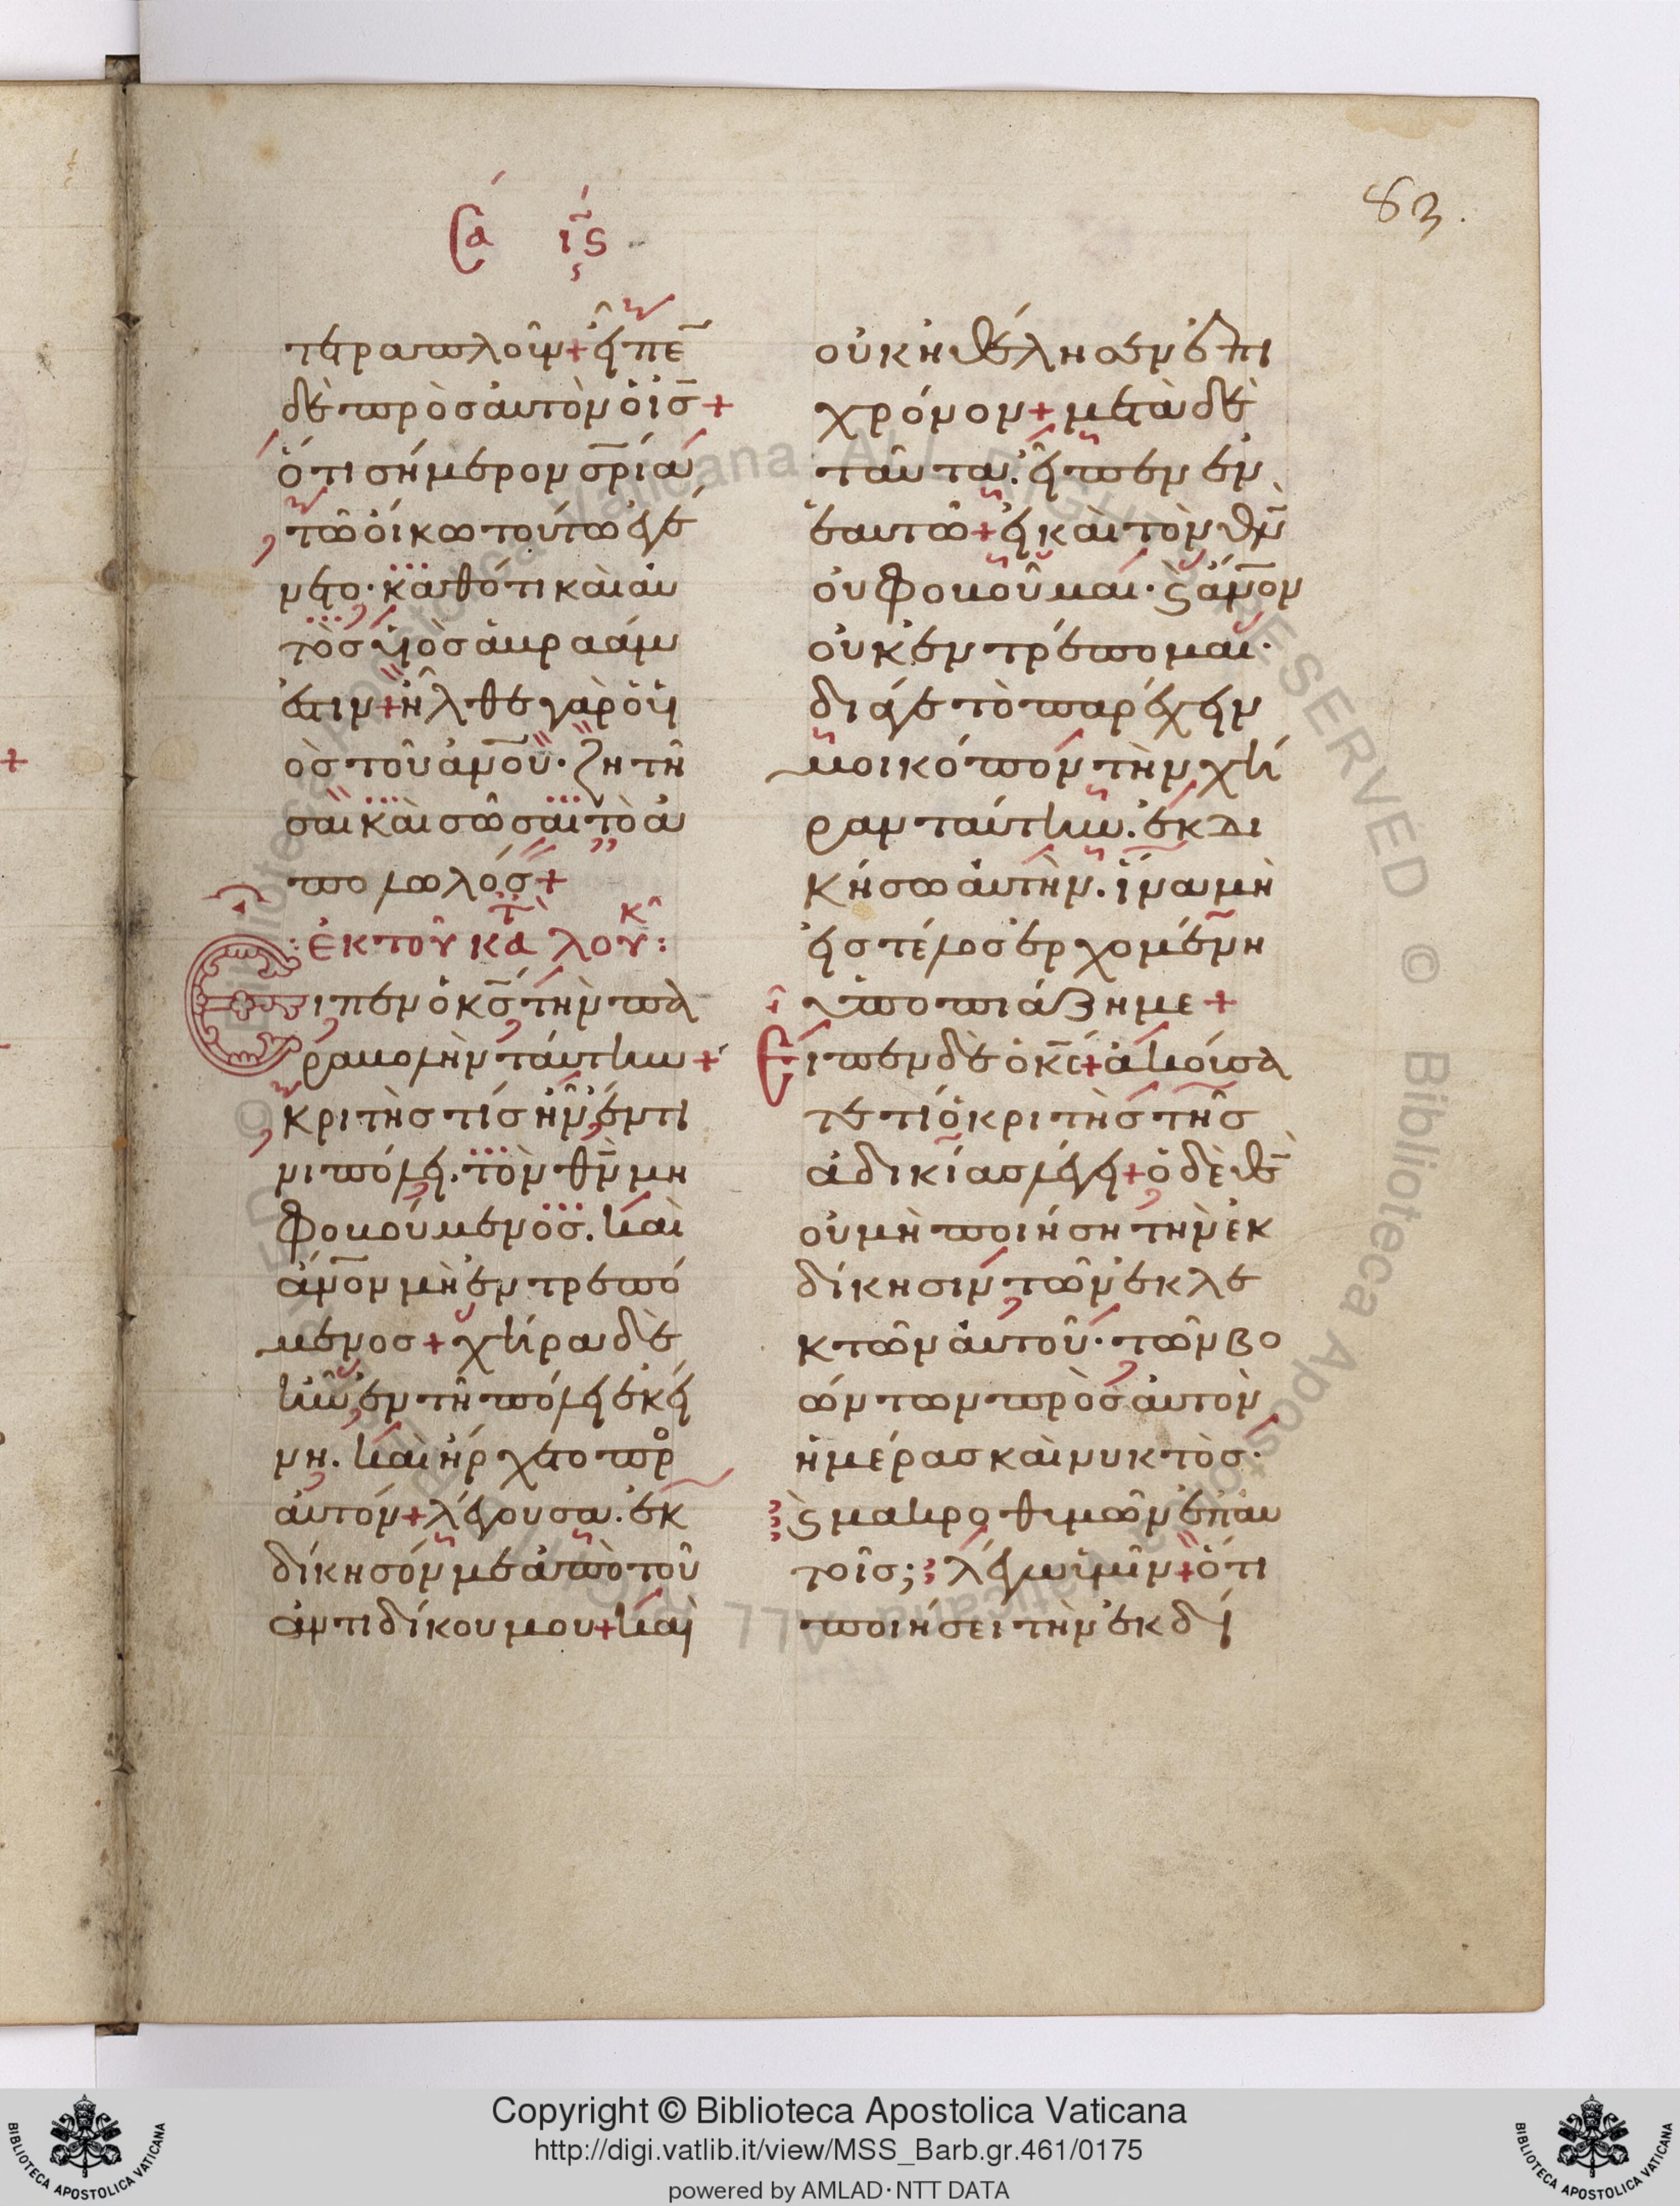 83.
Σα ιϛ
τετραπλοῦν + εἶπε
δὲ πρὸς αὐτὸν ὁ ις +
ὅτι σήμερον σρία
τῶ οἴκω τούτω ἐγέ
νετο · καθότι καὶ αὐ
τὸς υἱὸς ἀβραάμ
ἐστιν + ἦλθε γὰρ ὁ υἱ
ὸς τοῦ ανου · ζητῆ
σαι καὶ σῶσαι τὸ ἀ
πολωλός +
ἐκ τοῦ κατὰ λουκ :
Εἶπεν ὁ κς τὴν πα
ραβολὴν ταύτην +
κριτὴς τίς ἦν ἔν τι
νι πόλει · τὸν θν μὴ
φοβούμενος · καὶ
ανον μὴ ἐντρεπό
μενος + χήρα δὲ
ἦν ἐν τῆ πόλει ἐκεί
νη · καὶ ἤρχετο πρ
αὐτόν + λέγουσα · ἐκ
δίκησόν με ἀπὸ τοῦ
ἀντιδίκου μου + καὶ
οὐκ ἠθέλησεν ἐπὶ
χρόνον + μετὰ δὲ
ταῦτα · εἶπεν ἐν
ἑαυτῶ + εἰ καὶ τὸν θν
οὐ φοβοῦμαι · ϛ ανον
οὐκ ἐντρέπομαι ·
διά γε τὸ παρέχειν
μοι κόπον τὴν χή
ραν ταύτην · ἐκδι
κήσω αὐτήν · ἵνα μὴ
εἰς τέλος ἐρχομένη
ὑποπιάζη με +
Εἶπεν δὲ ὁ κς + ἀκούσα
τε τί ὁ κριτὴς τῆς
ἀδικίας λέγει + ὁ δὲ θς
οὐ μὴ ποιήση τὴν ἐκ
δίκησιν τῶν ἐκλε
κτῶν αὐτοῦ · τῶν βο
ώντων πρὸς αὐτὸν
ἡμέρας καὶ νυκτὸς ·
ϛ μακροθυμῶν ἐπ αὐ
τοῖς; λέγω ὑμῖν + ὅτι
ποιήσει τὴν ἐκδί
Copyright © Biblioteca Apostolica Vaticana
http://digi.vatlib.it/view/MSS_Barb.gr.461/0175
powered by AMLAD·NTT DATA